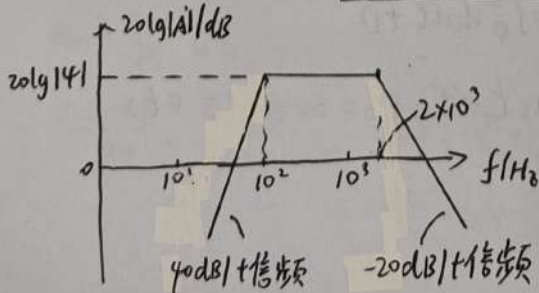 20lg|Ȧ|/dB
20lg|4|
2×10³
0
10¹
10²
10³
f/Hz
40dB/十倍频
-20dB/十倍频